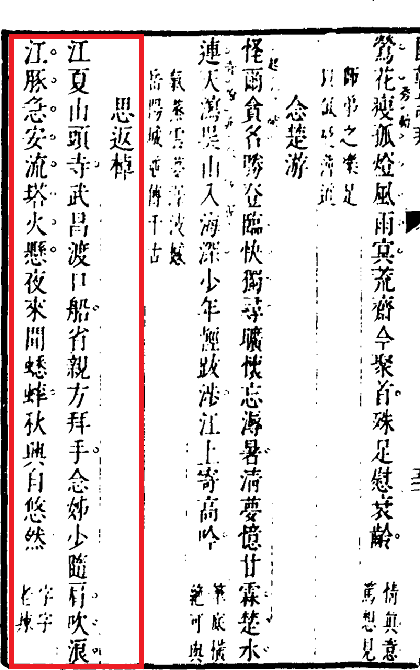 鶯花瘦孤燈風雨寅荒齋今聚首殊足慰衰齡
情真意
篤想見
師弟之樂足
念楚游
怪爾貪名勝登臨快獨尋曠懷忘溽暑清夢憶甘霖楚水
連天瀉吳山入海深少年輕跋涉江上寄高吟
氣蒸雲夢澤波撼
岳陽城並傳千古
思返棹
江夏山頭寺武昌渡口船省親方拜手念姊少隨肩吹浪
江豚急安流塔火懸夜來聞蟋蟀秋興自悠然
字字